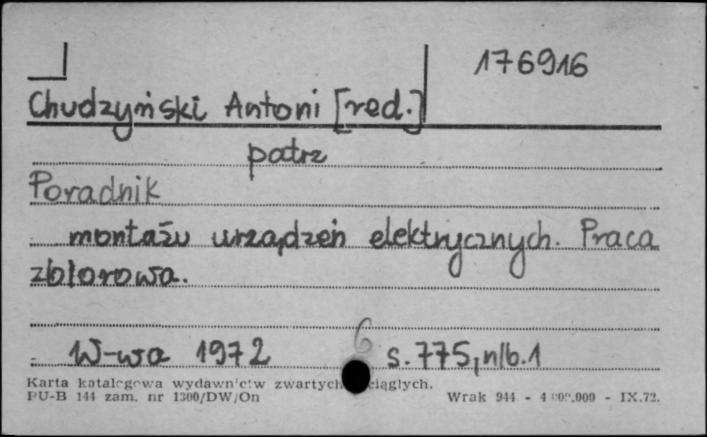 176916
Chudzyński Antoni [red.]
patrz
Poradnik
montażu urządzeń elektrycznych. Praca
zbiorowa.
6
W-wa 1972 s. 775, nlb. 1
Karta katalogowa wydawnictw zwartych ciągłych.
PU-B 144 zam. nr 1300/DW/On Wrak 944 - 4 000.000 - IX.72.